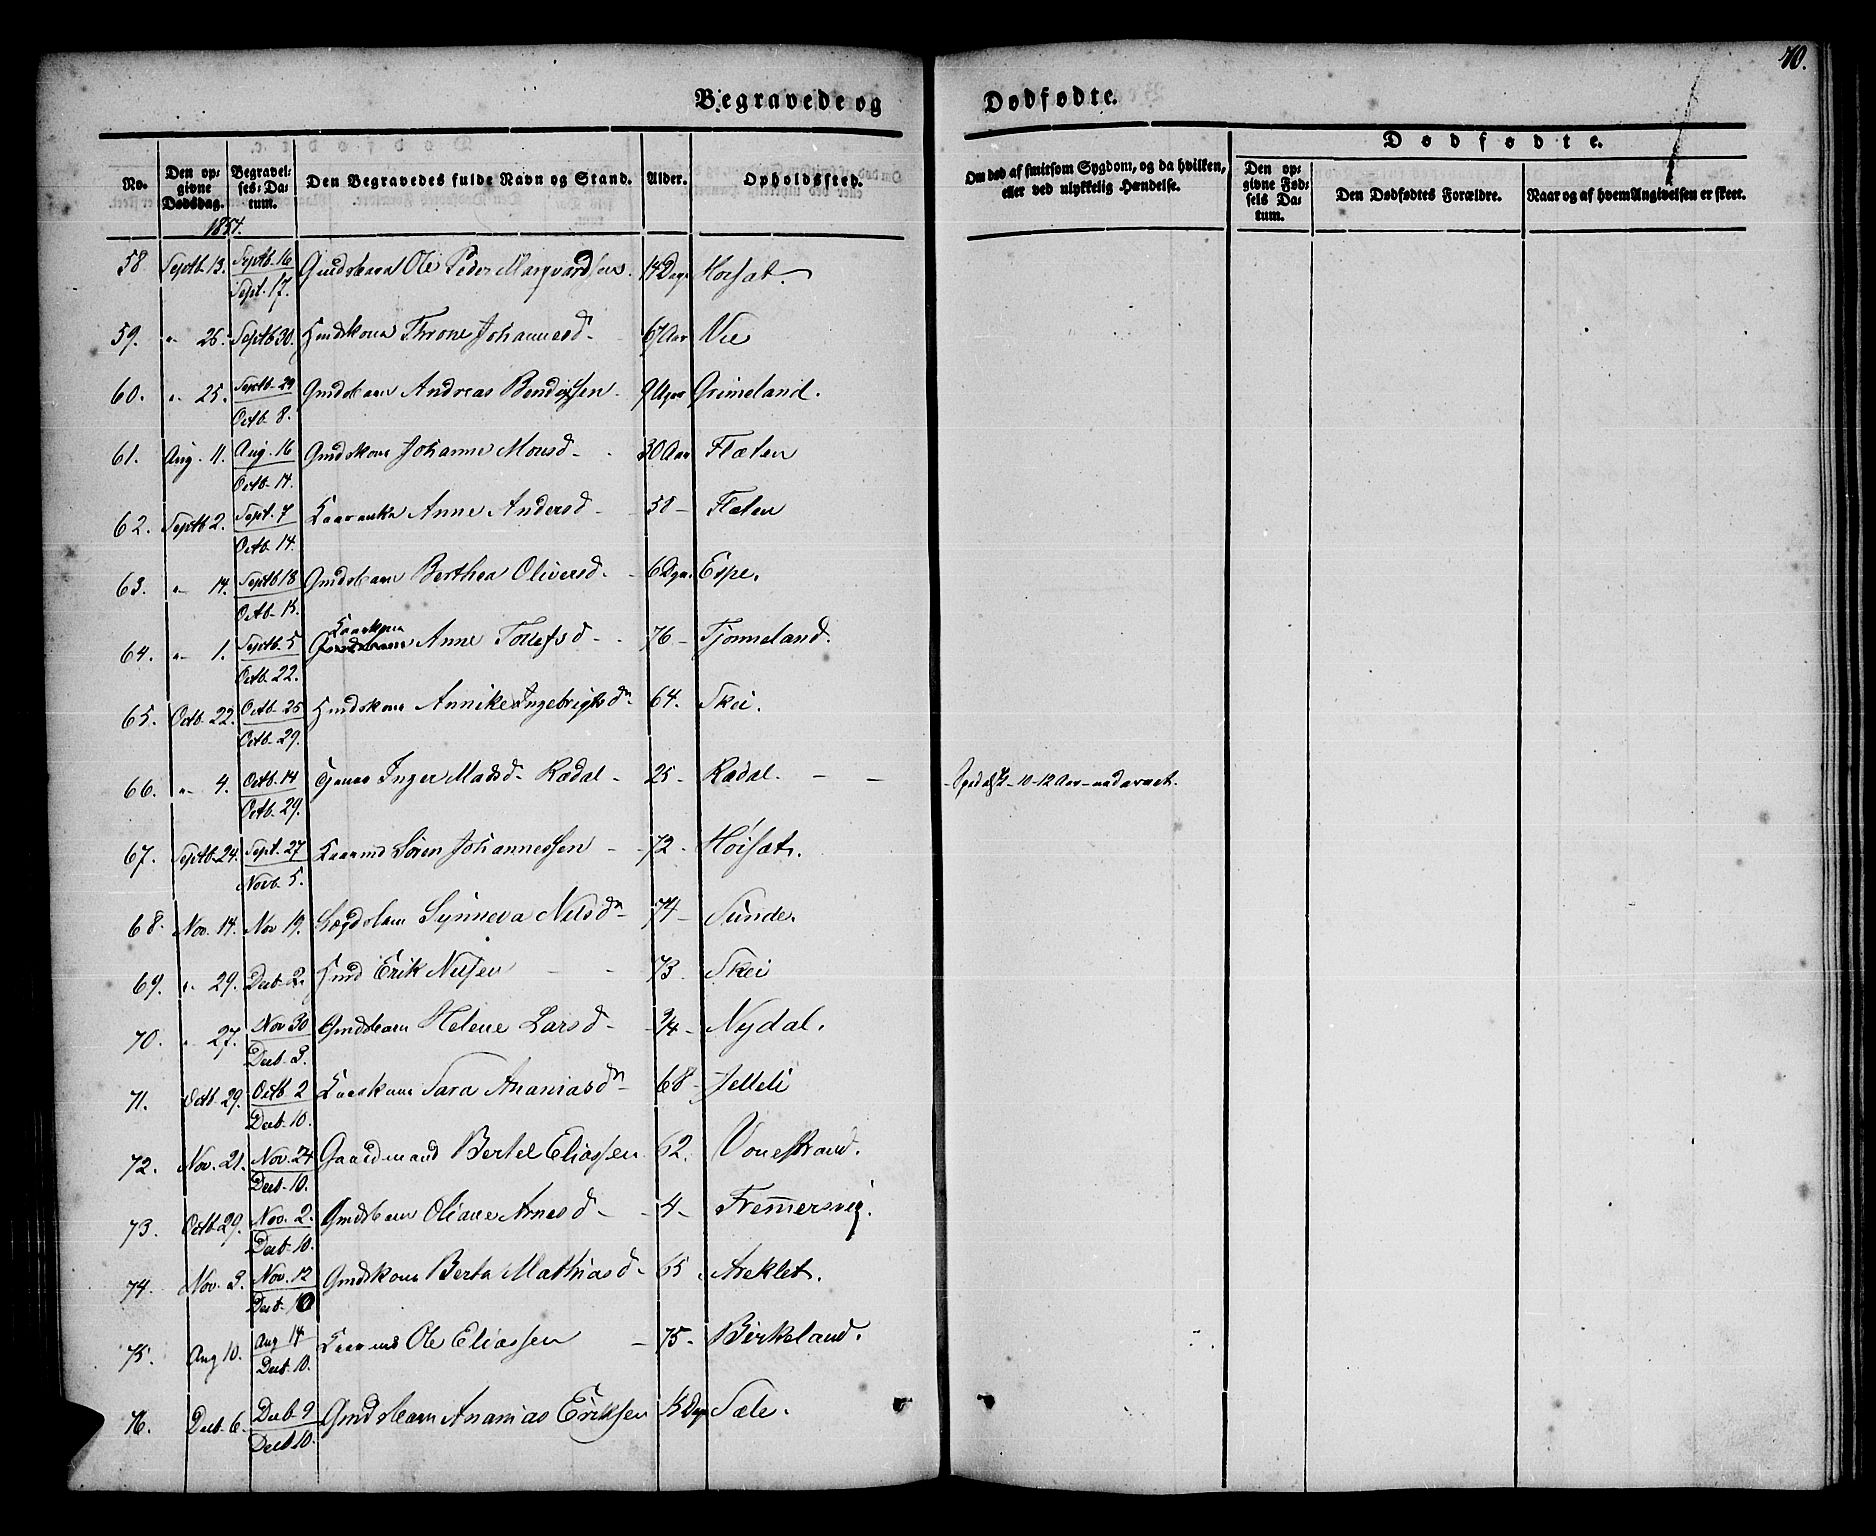 70.
Begravede og Dødfødte.
No.
Den opgivne Dødsdag.
Begravelses-Datum.
Den Begravedes fulde Navn og Stand.
Alder.
Opholdssted.
Om død af smitsom Sygdom, og da hvilken, eller ved ulykkelig Hændelse.
Dødfødte.
Den opgivne Fødsels Datum.
Den Dødfødtes Forældre.
Naar og af hvem Angivelsen er skeet.
1854.
58 Septb. 13. Septb. 16 Sept. 17. Gmdsbarn Ole Peder Marqvardsen. 14 Dage Høisæt.
59. " 26. Septb 30. Hmdskone Throne Johannesd. 67 Aar Vie
60. " 25. Septb. 29 Octb. 8. Gmdsbarn Andreas Bendixsen. 9 Uger Grimeland.
61. Aug. 11. Aug. 16 Octb. 14. Gmdskone Johanne Monsd. 30 Aar Flæten
62. Septb 2. Sept. 7 Octb. 14. Kaarenke Anne Andersd. 58 Flæten
63. " 14. Septb 18 Octb. 15. Gmdsbarn Berthea Oliversd. 6 Dge. Espe.
64. " 1. Septb. 5 Octb. 22. Kaarkone Anne Tollefsd. 76 Tjønneland.
65. Octb. 22. Octb. 25 Octb. 29. Hmdskone Annike Ingebrigtsdn. 64. Skei.
66. " 4. Octb. 14 Octb. 29. Inger Madsd. Rødal 25 Rødal. Spedalsk 10-12 Aar
67. Septb. 24. Sept. 27 Novb. 5. Kaarmd Sören Johannessen 72 Høisæt.
68. Nov. 14. Nov 19. Lægdslem Synneva Nilsdn 74 Sunde.
69. " 29. Decb. 2. Hmd Erik Nilsen 73 Skei
70. " 27. Nov 30 Decb. 3. Gmdsbarn Helene Larsd. 3/4 Nydal.
71. Octb. 29. Octb 2 Decb. 10. Kaarkone Sara Ananiasdn 68 Jelleli
72. Nov. 21. Nov. 24 Decb. 10. Gaardmand Bertel Eliassen 62. Vonestrand.
73. Octb 29. Nov. 2. Decb. 10. Gmdsbarn Oliane Arnesd. 4 Fremmersvig.
74. Nov. 3. Nov. 12 Decb. 10 Gmdskone Berta Mathiasd. 65 Areklet.
75. Aug 10. Aug 14 Decb. 10. Kaarmd Ole Eliassen 75 Birkeland.
76. Decb 6. Decb. 9 Decb 10. Gmdsbarn Ananias Eriksen Dge Sæle.